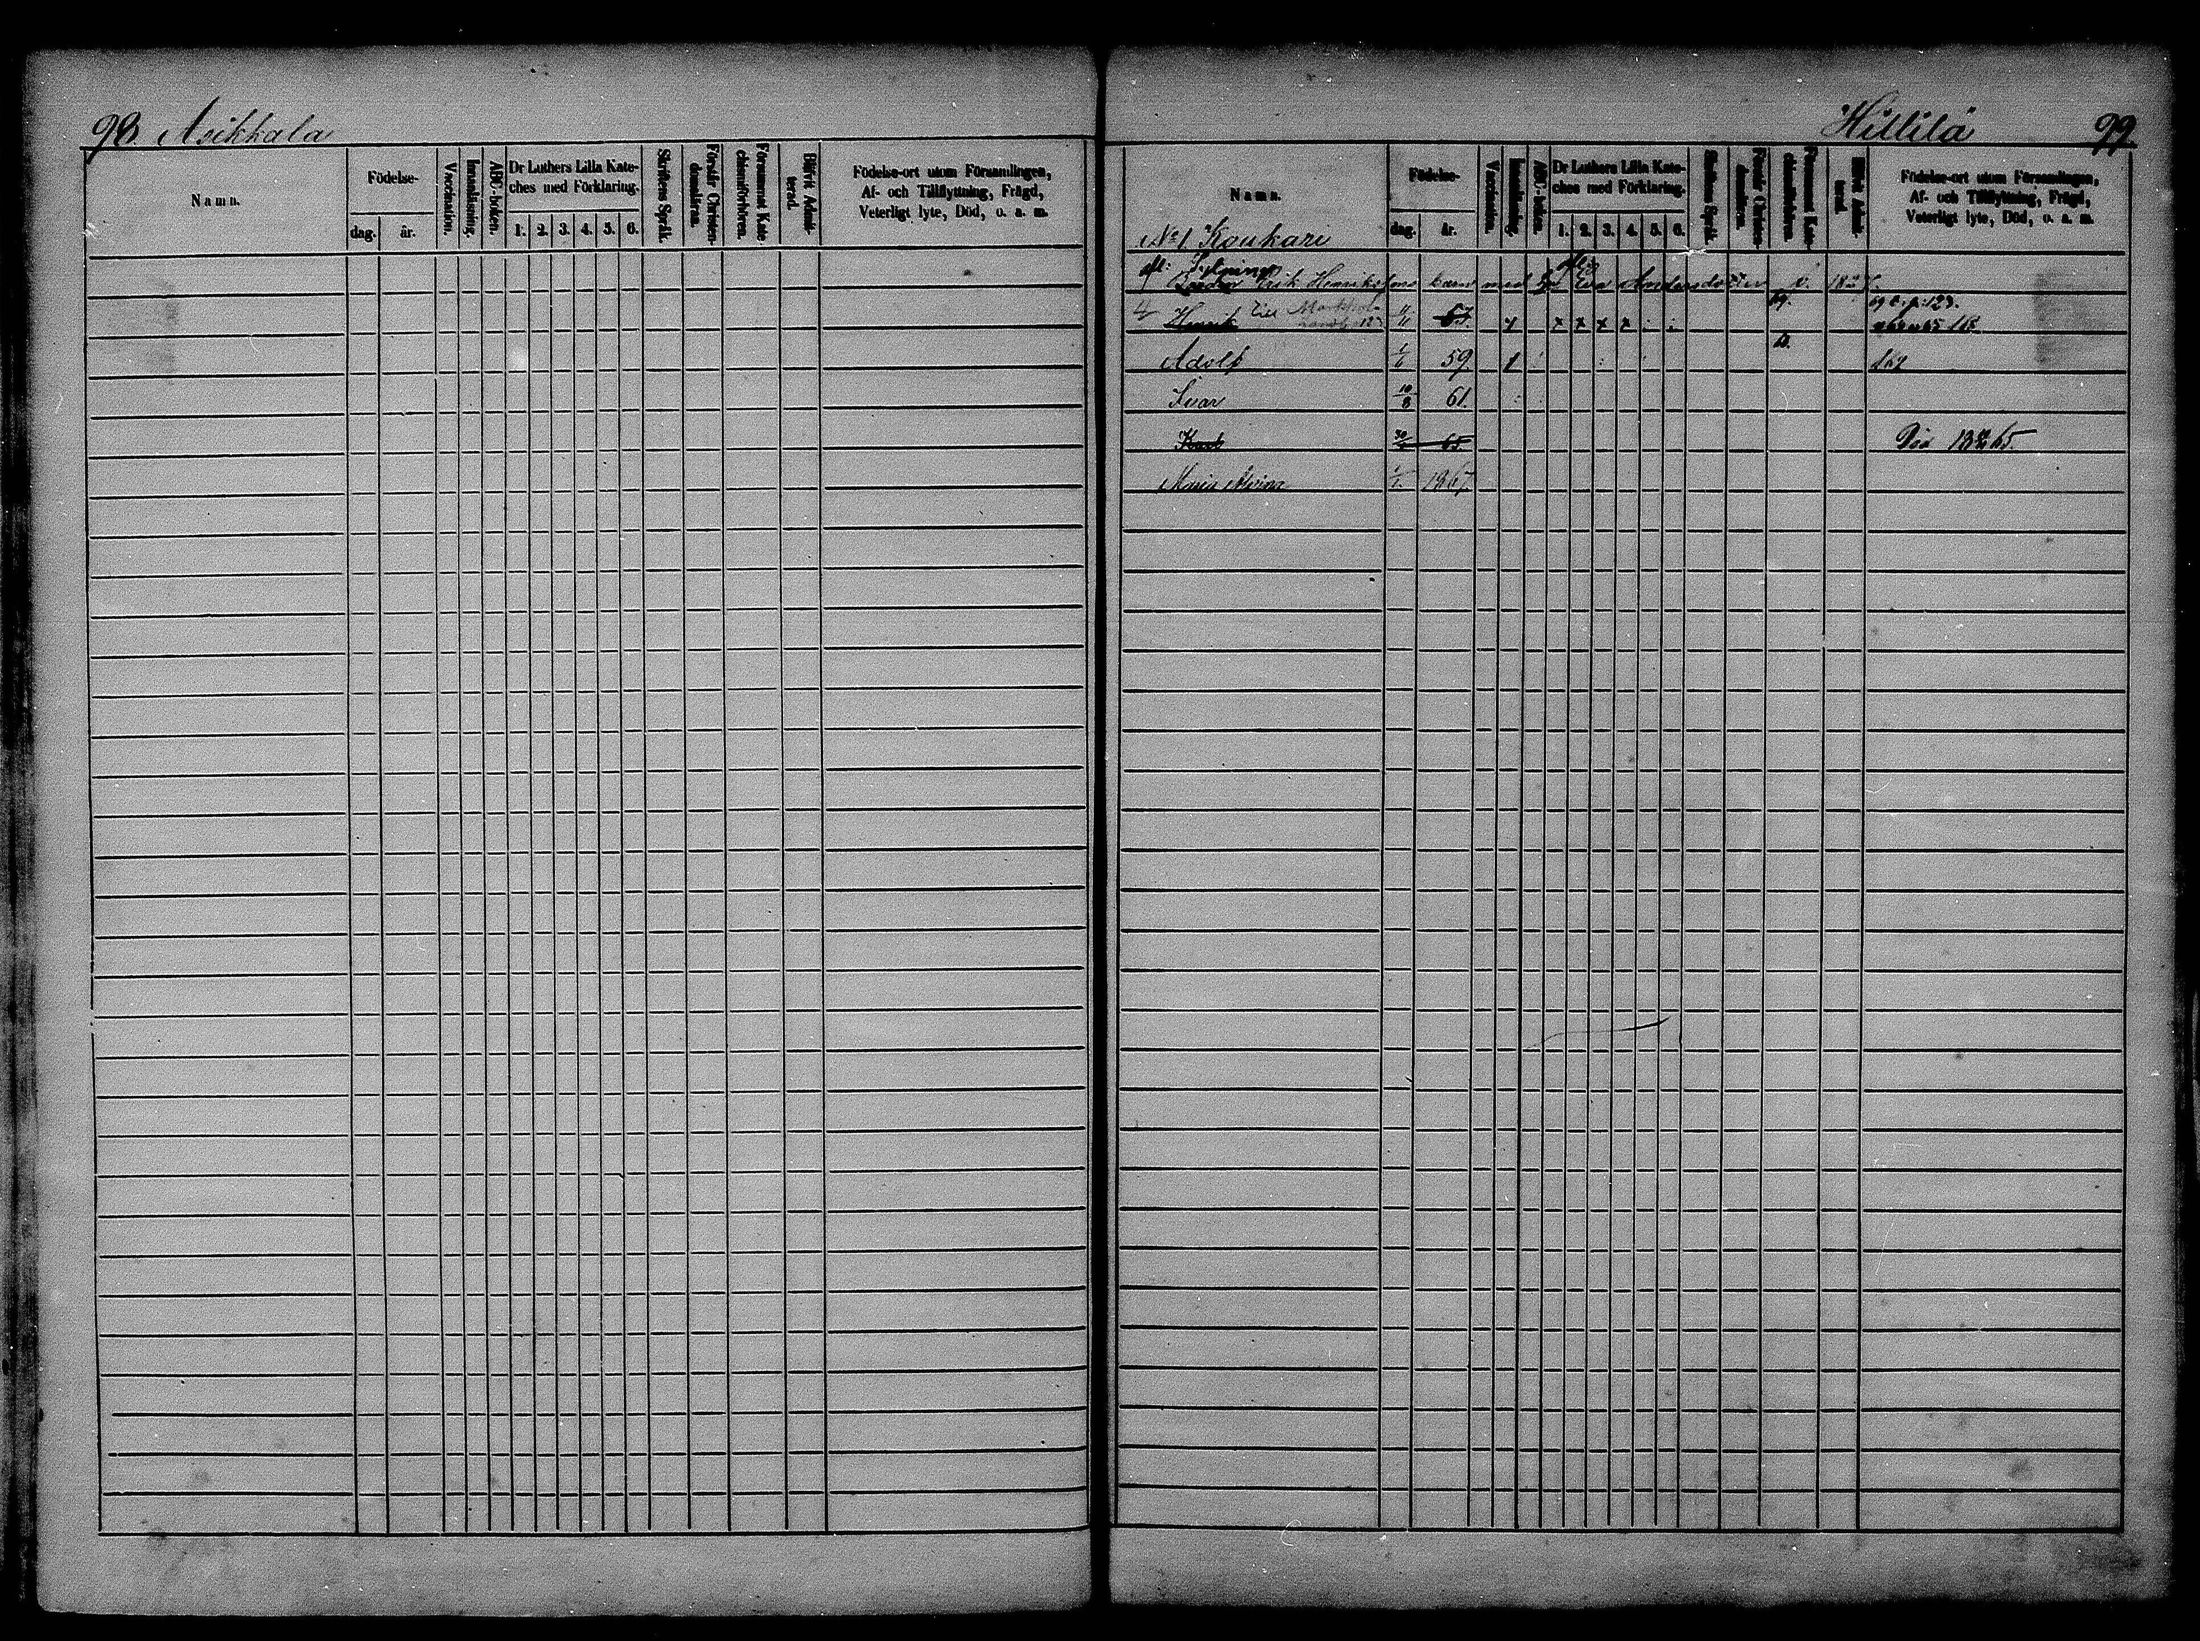 98. Asikkala
Namn. Födelse- dag. år. Vaccination. Innanläsning. ABC-boken. Dr Luthers Lilla Kateches med Förklaring. 1. 2. 3. 4. 5. 6. Skriftens Språk. Förstår Christendomsläran. Försummat Katechismiförhören. Blifvit Admitterad. Födelse-ort utom Församlingen, Af- och Tillflyttning, Frägd, Veterligt lyte, Död, o. a. m.
Hillilä 99.
Namn. Födelse- dag. år. Vaccination. Innanläsning. ABC-boken. Dr Luthers Lilla Kateches med Förklaring. 1. 2. 3. 4. 5. 6. Skriftens Språk. Förstår Christendomsläran. Försummat Katechismiförhören. Blifvit Admitterad. Födelse-ort utom Församlingen, Af- och Tillflyttning, Frägd, Veterligt lyte, Död, o. a. m.
No 1 Koukari
afl: Erik Henrikssons barn med Eva Andersdotter
Henrik till 57. x x x x p. 123.
Adolf 59.
Ivar 10/8 61.
65. Död 65.
Maria 1867.